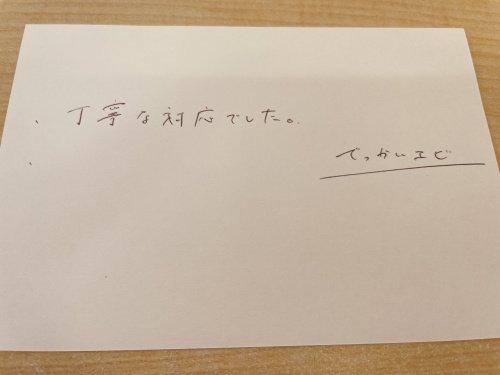 、丁寧な対応でした。
、
でっかいエビ